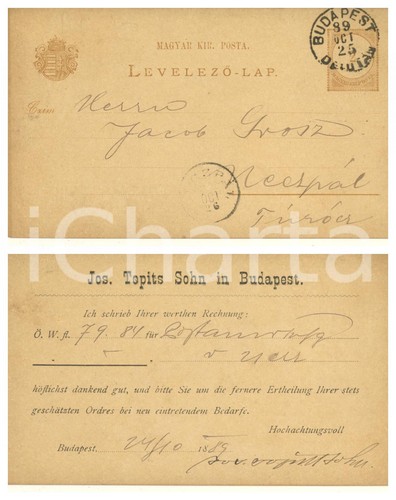 MAGYAR KIR. POSTA.
LEVELEZŐ-LAP.
BUDAPEST
89
OCT
25
DÉLUTÁN
Czim:
Herrn
Jacob Grosz
Neczpál
Túrócz
iCharta
Jos. Topits Sohn in Budapest.
Ich schrieb Ihrer werthen Rechnung:
Ö. W. fl. 79. 84 für
höflichst dankend gut, und bitte Sie um die fernere Ertheilung Ihrer stets
geschätzten Ordres bei neu eintretendem Bedarfe.
Hochachtungsvoll
Budapest. 24/10 1889